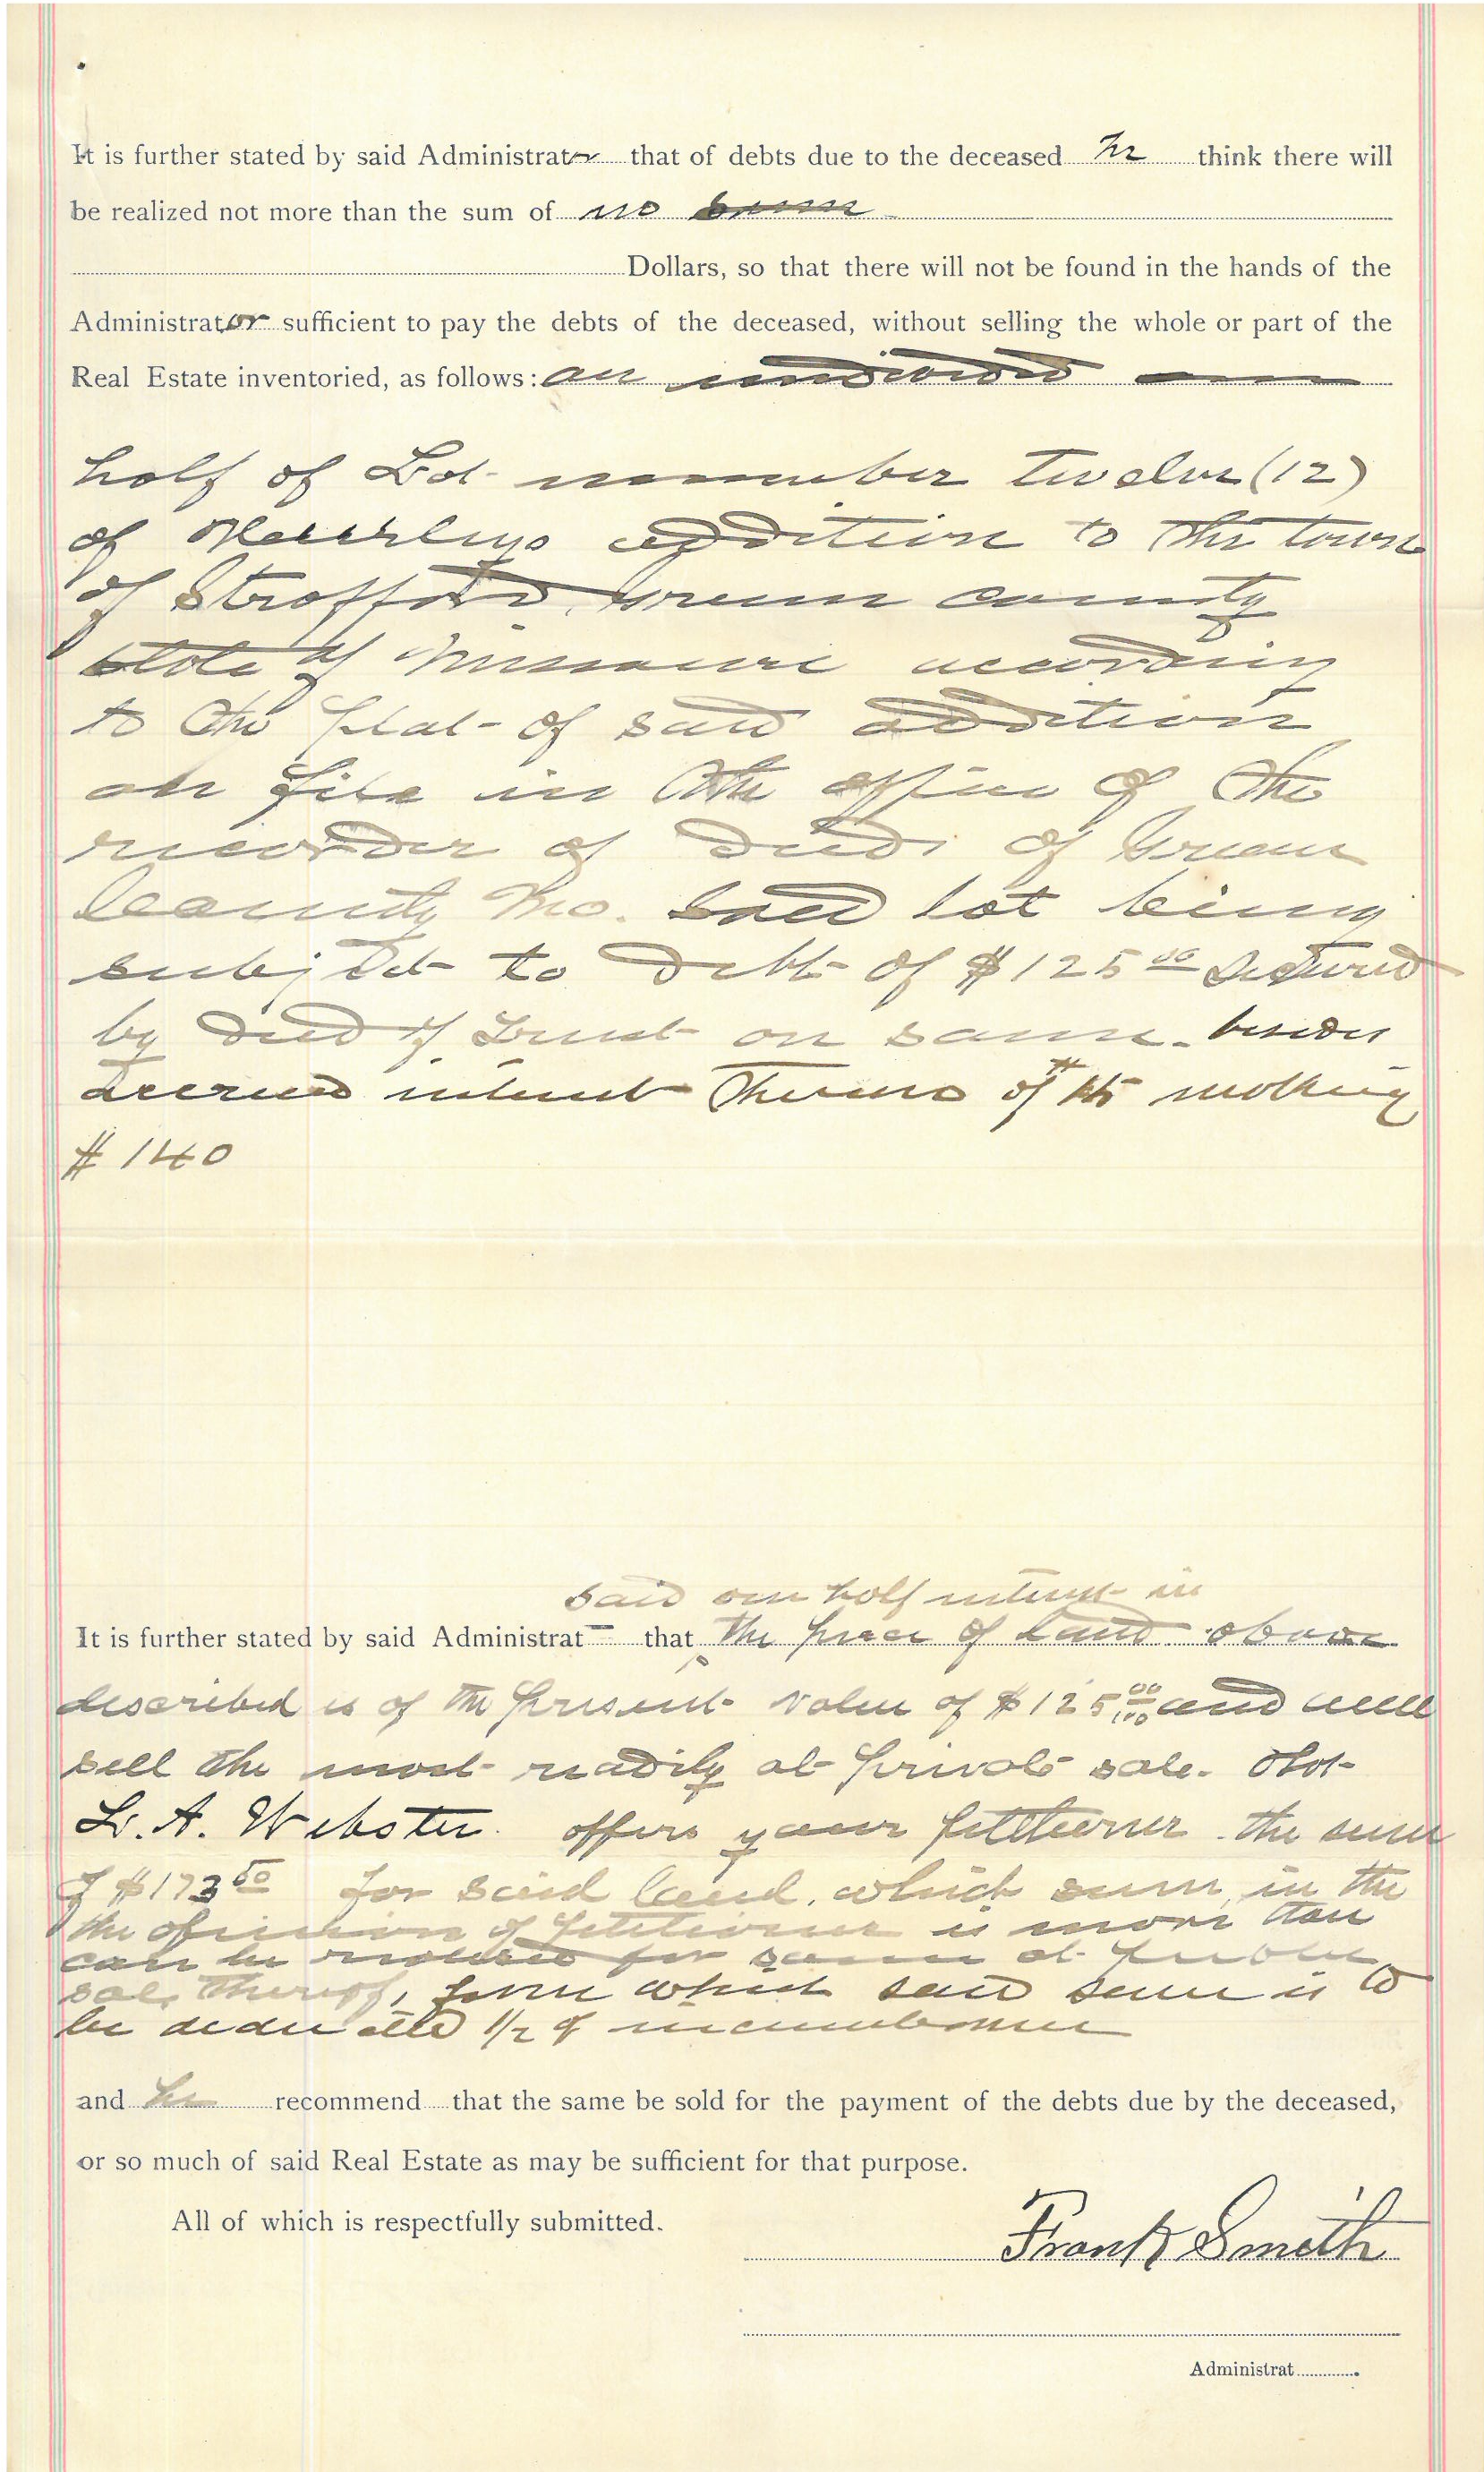 It is further stated by said Administrator that of debts due to the deceased he think there will
be realized not more than the sum of no sum
Dollars, so that there will not be found in the hands of the
Administrator sufficient to pay the debts of the deceased, without selling the whole or part of the
Real Estate inventoried, as follows: an undivided one
half of Lot number twelve (12)
of addition to the town
of Strafford, Green county
State of Missouri according
to the plat of said addition
on file in the office of the
recorder of deeds of Green
County Mo. Said lot being
subject to debt of $125 00 secured
by deed of trust on same. besides
accrued interest thereno of $15 making
$140
said one half interest in
It is further stated by said Administrat that the piece of land above
described is of the present value of $125 00/100 and will
sell the most readily at private sale. That
L. A. Webster offers your petitioner the sum
of $173 50 for said land, which sum, in the
the opinion of petitioner is more than
can be realized for same at public
sale thereof, from which said sum is to
be deducted 1/2 of incumbrance
and he recommend that the same be sold for the payment of the debts due by the deceased,
or so much of said Real Estate as may be sufficient for that purpose.
All of which is respectfully submitted.
Frank Smith
Administrat